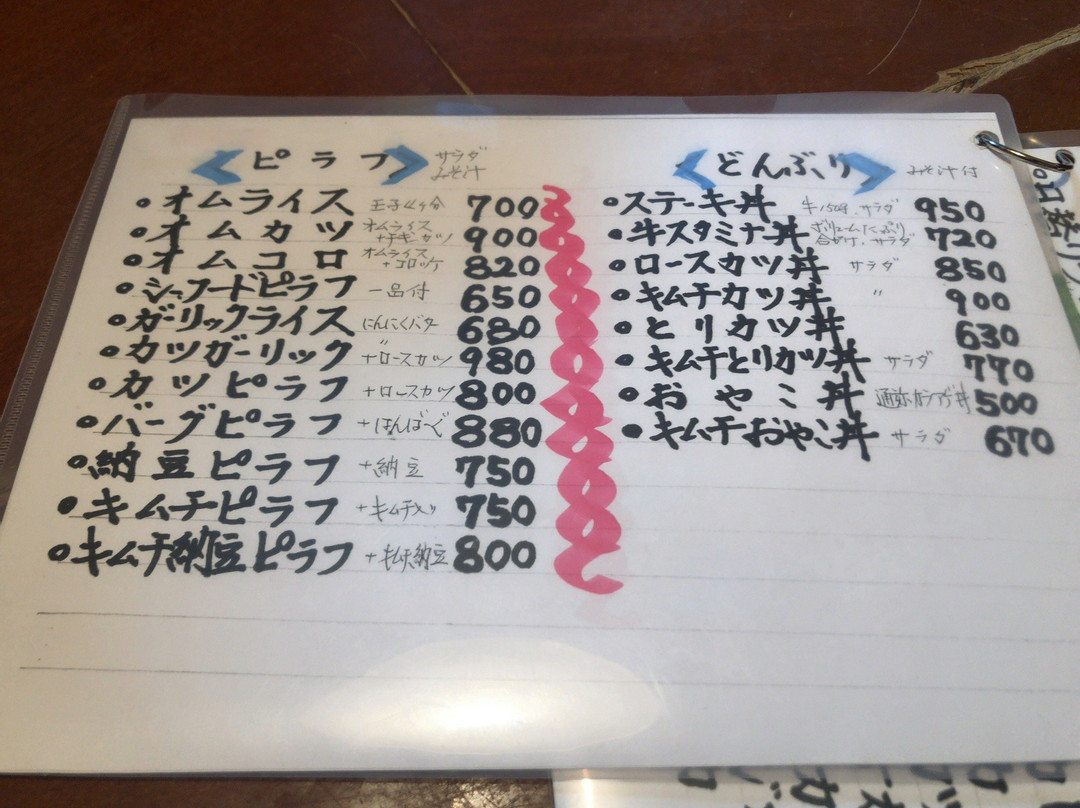 ピラフ サラダ みそ汁
・オムライス 玉子4ヶ分 700
・オムカツ オムライス+チキンカツ 900
・オムコロ オムライス+コロッケ 820
・シーフードピラフ 一品付 650
・ガーリックライス にんにくバター 680
・カツガーリック 〃 +ロースカツ 980
・カツピラフ +ロースカツ 800
・バーグピラフ +はんばーぐ 880
・納豆ピラフ +納豆 750
・キムチピラフ +キムチ 750
・キムチ納豆ピラフ +キムチ納豆 800
どんぶり みそ汁付
・ステーキ丼 牛150g、サラダ 950
・牛スタミナ丼 ボリュームたっぷり サラダ 720
・ロースカツ丼 サラダ 850
・キムチカツ丼 〃 900
・とりカツ丼 630
・キムチとりカツ丼 サラダ 770
・おやこ丼 500
・キムチおやこ丼 サラダ 670